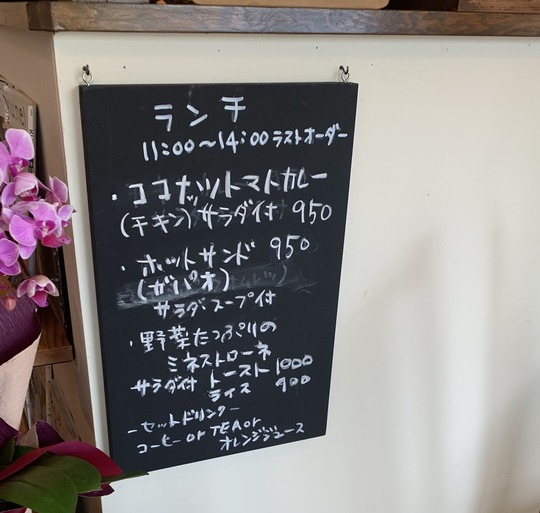 ランチ
11:00～14:00 ラストオーダー
・ココナッツトマトカレー
(チキン)サラダ付 950
・ホットサンド 950
(ガパオ)
サラダスープ付
・野菜たっぷりの
ミネストローネ
サラダ付 トースト 1000
ライス 900
-セットドリンク-
コーヒー or TEA or
オレンジジュース